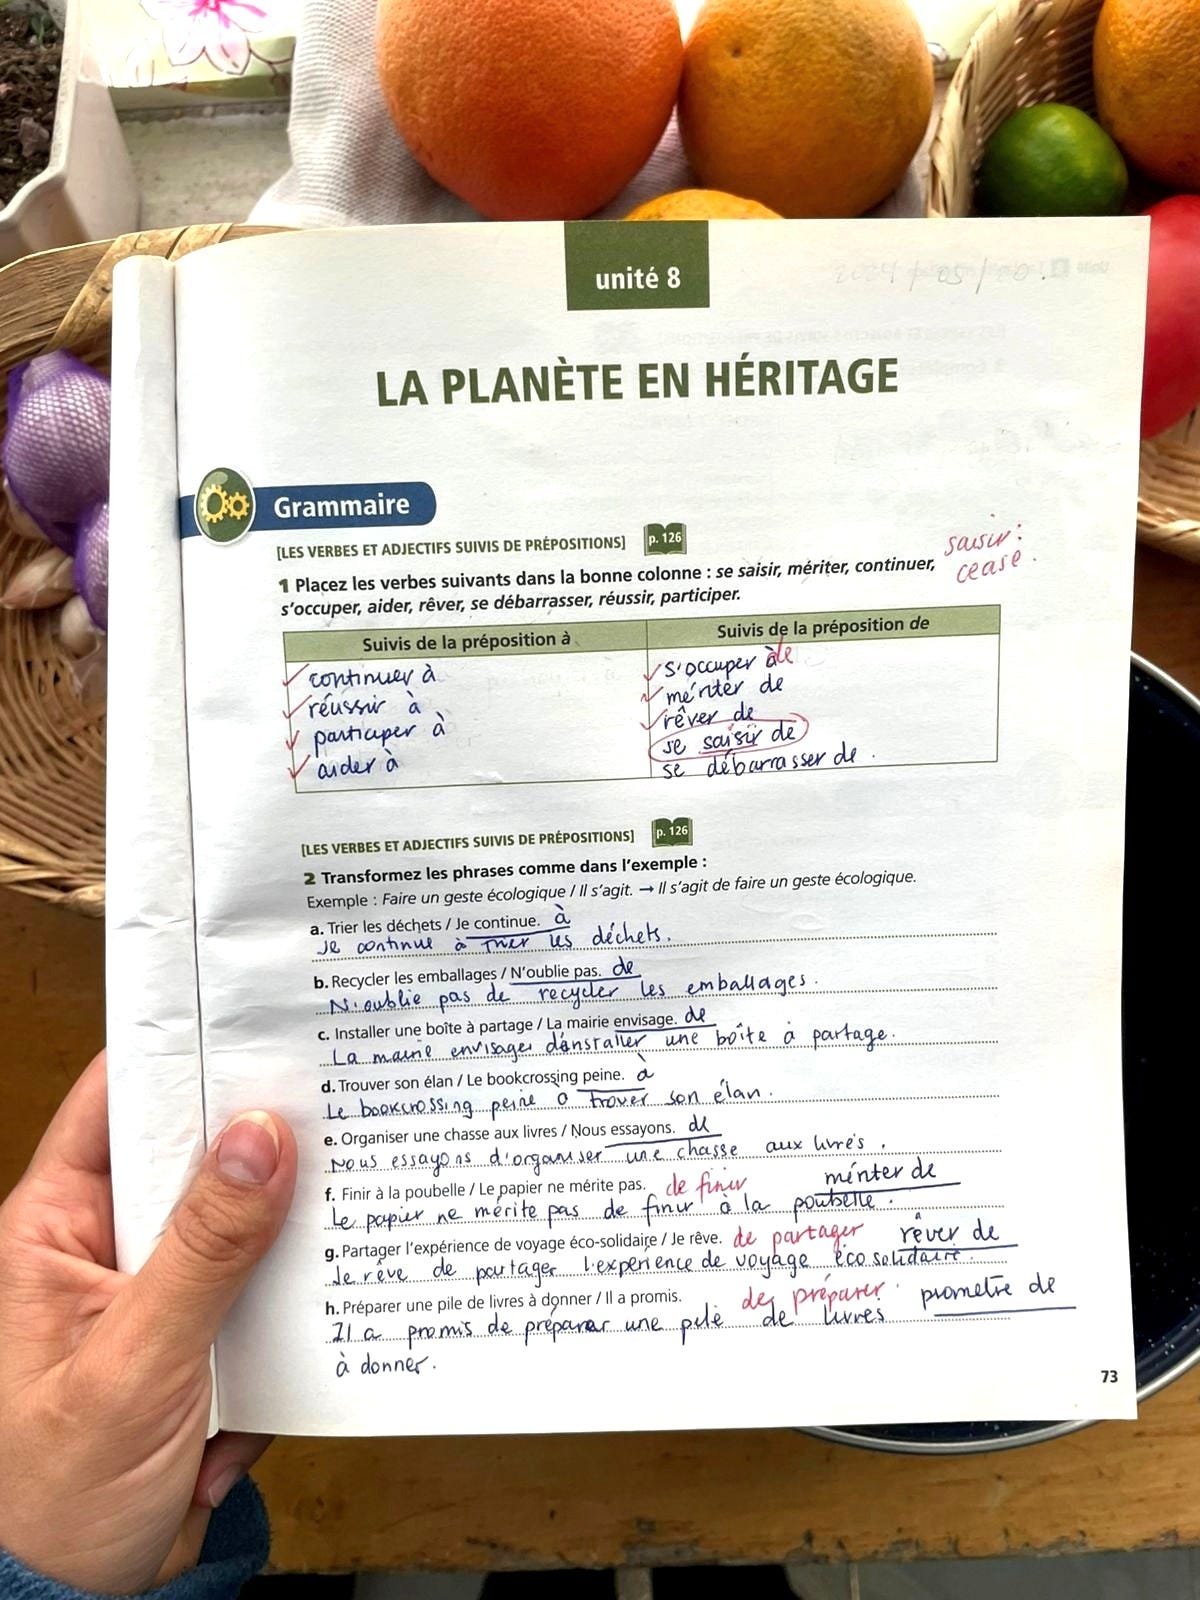 unité 8
LA PLANÈTE EN HÉRITAGE
Grammaire
[LES VERBES ET ADJECTIFS SUIVIS DE PRÉPOSITIONS] p. 126
saisir :
cease .
1 Placez les verbes suivants dans la bonne colonne : se saisir, mériter, continuer,
s'occuper, aider, rêver, se débarrasser, réussir, participer.
Suivis de la préposition à
Suivis de la préposition de
continuer à
réussir à
participer à
aider à
s'occuper de
mériter de
rêver de
se saisir de
se débarrasser de .
[LES VERBES ET ADJECTIFS SUIVIS DE PRÉPOSITIONS] p. 126
2 Transformez les phrases comme dans l'exemple :
Exemple : Faire un geste écologique / Il s'agit. → Il s'agit de faire un geste écologique.
a. Trier les déchets / Je continue. à
Je continue à trier les déchets.
b. Recycler les emballages / N'oublie pas. de
N'oublie pas de recycler les emballages .
c. Installer une boîte à partage / La mairie envisage. de
La mairie envisage d'installer une boîte à partage.
d. Trouver son élan / Le bookcrossing peine. à
Le bookcrossing peine à trover son élan .
e. Organiser une chasse aux livres / Nous essayons. de
Nous essayons d'organiser une chasse aux livres .
f. Finir à la poubelle / Le papier ne mérite pas. de finir mériter de
Le papier ne mérite pas de finir à la poubelle .
g. Partager l'expérience de voyage éco-solidaire / Je rêve. de partager rêver de
Je rêve de partager l'expérience de voyage éco solidaire .
h. Préparer une pile de livres à donner / Il a promis. de préparer . prometre de
Il a promis de préparer une pile de livres
à donner .
73